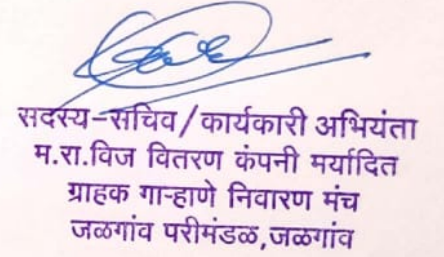 सदस्य-सचिव/कार्यकारी अभियंता
म.रा.विज वितरण कंपनी मर्यादित
ग्राहक गाऱ्हाणे निवारण मंच
जळगांव परीमंडळ,जळगांव